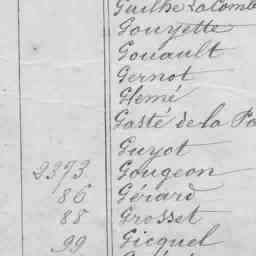 Guilhe Lalomb
Gouyette
Gouault
Gernot
Glemé
Gasté de la Po
Guyot
2373 Gougeon
86 Gérard
88 Grosset
99 Gicquel